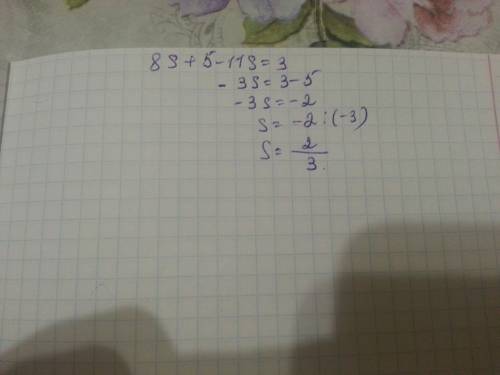 8s+5-11s=3
-3s=3-5
-3s=-2
s=-2:(-3)
s=2/3.